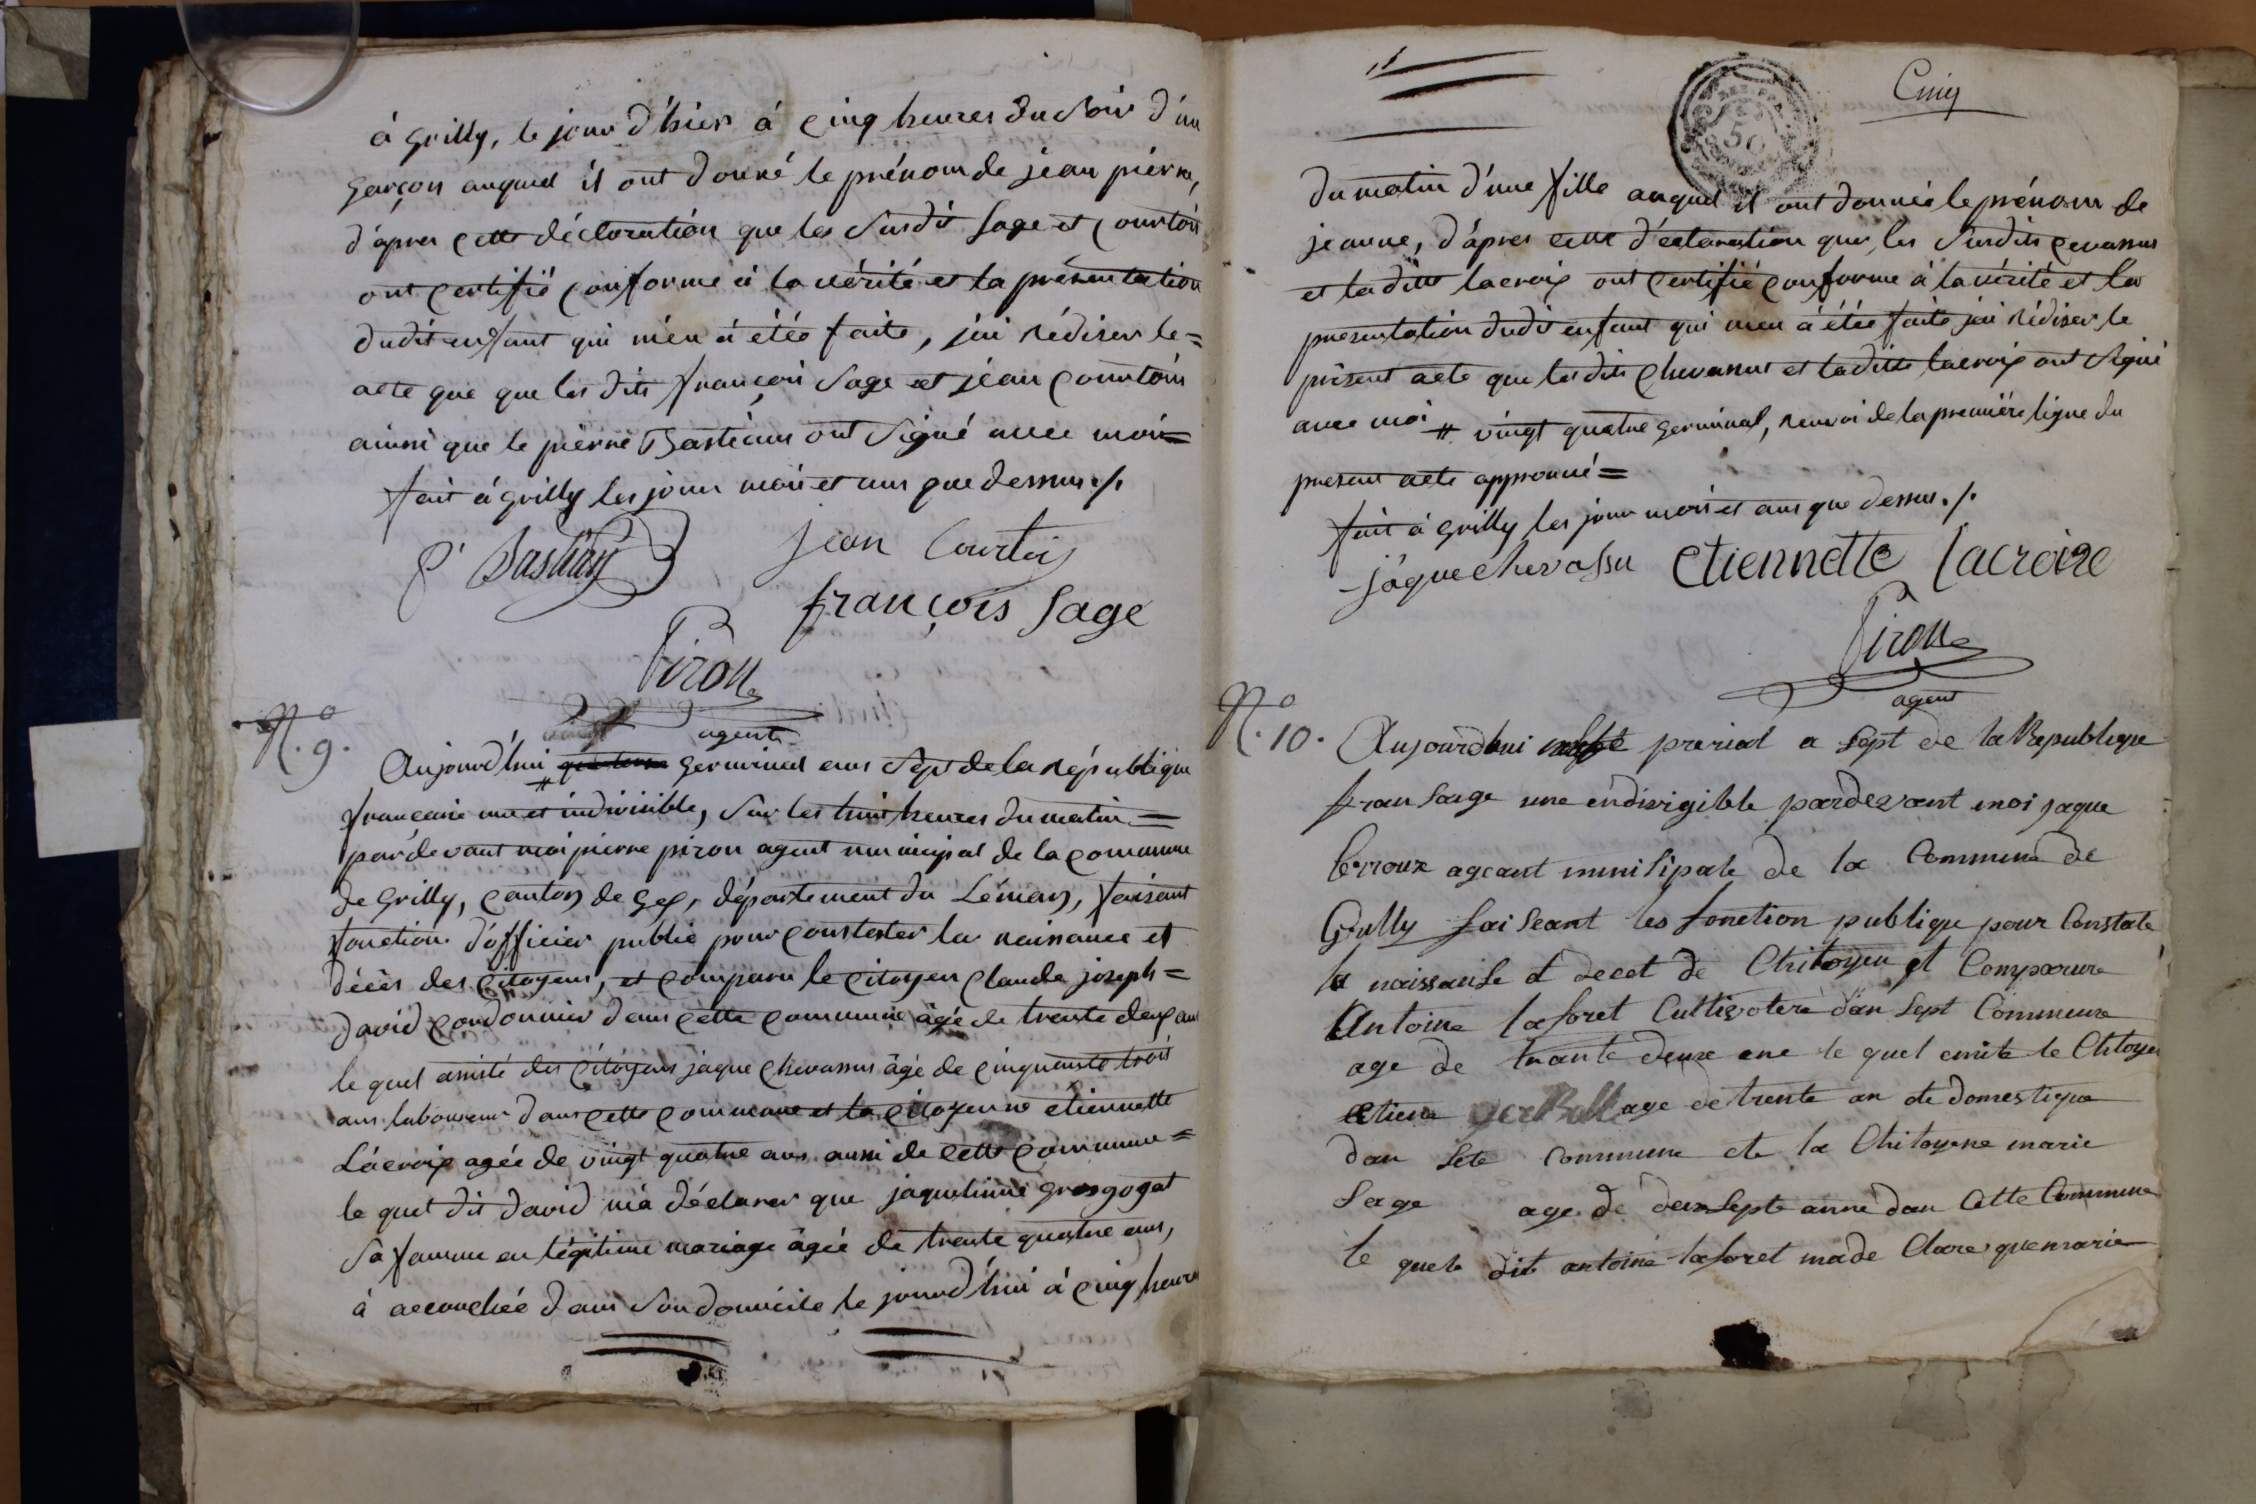 à Grilly, le jour d'hier à cinq heures du soir d'un
garçon auquel il ont donné le prénom de jean pierre,
d'après cette déclaration que les susdit sage et courtois
ont certifié conforme à la vérité et la présentation
dudit enfant qui m'en à étée faite, j'ai rédiser le =
acte que que les dits françois sage et jean courtois
ainsi que le pierre Bastians ont signé avec moi =
fait à Grilly les jour mois et ans que dessus ./.
P. Bastian
jean Courtois
françois Sage
Piron
agent
N.o 9.
Aujourd'hui # germinal ans sept de la république
française une et indivisible, sur les huit heures du matin =
pardevant moi pierre piron agent municipal de la commune
de Grilly, canton de Gex, département du Léman, faisant
fonction d'officier public pour constester la naisance et
décès des citoyens, et comparu le citoyen claude joseph =
david cordonnier dans cette commune âgé de trente deux ans
le quel assisté des citoyens jaque chevassus âgé de cinquante trois
ans laboureur dans cette commune et la citoyenne etiennette
Lacroix agée de vingt quatre ans aussi de cette commune =
le quel dit david m'à déclarer que jaquelinne grosgogat
sa famme en légitime mariage âgée de trente quatre ans,
à accouchée dans son domicile le jourd'hui à cinq heures
Cinq
50
du matin d'une fille auquel il ont donnée le prénom de
jeanne, d'après cette d'éclaration que les susdits cevassus
et la ditte lacroix ont certifié conforme à la vérité et la
presentation dudit enfant qui m'en à étée faite j'ai rédiser le
présent acte que les dits chevassus et la ditte lacroix ont signé
avec moi # vingt quatre germinal, renvoi de la première ligne du
present acte approuvé =
fait à Grilly les jour mois et ans que dessus ./.
jâque chevassu etiennette lacroix
Piron
agent
N.o 10. Aujourdhui prerial a sept de la Republique
fransaige une endivigible pardevant moi jaque
leroux ageant munisipale de la Commune de
Grilly faiseant les fonction publique pour Constate
la naissanse et decet de Chitoyen et Comparure
Antoine laforet Cultivotere dan sept Commeune
age de trante deux ene le quel emite le Chitoyen
etiene age de trente an de domestique
dan sete commune et la Chitoyene marie
Sage age de deux septe anné dan Cette Commune
le quele dit antoine laforet made Clare que marie